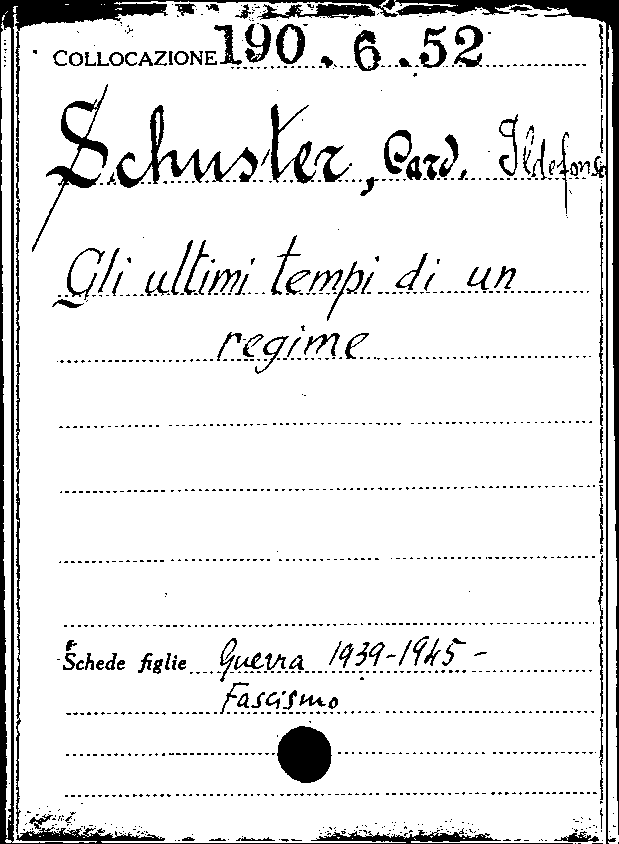 COLLOCAZIONE 190.6.52
Schuster, Card. Ildefonso
Gli ultimi tempi di un
regime
Schede figlie Guerra 1939-1945 -
Fascismo